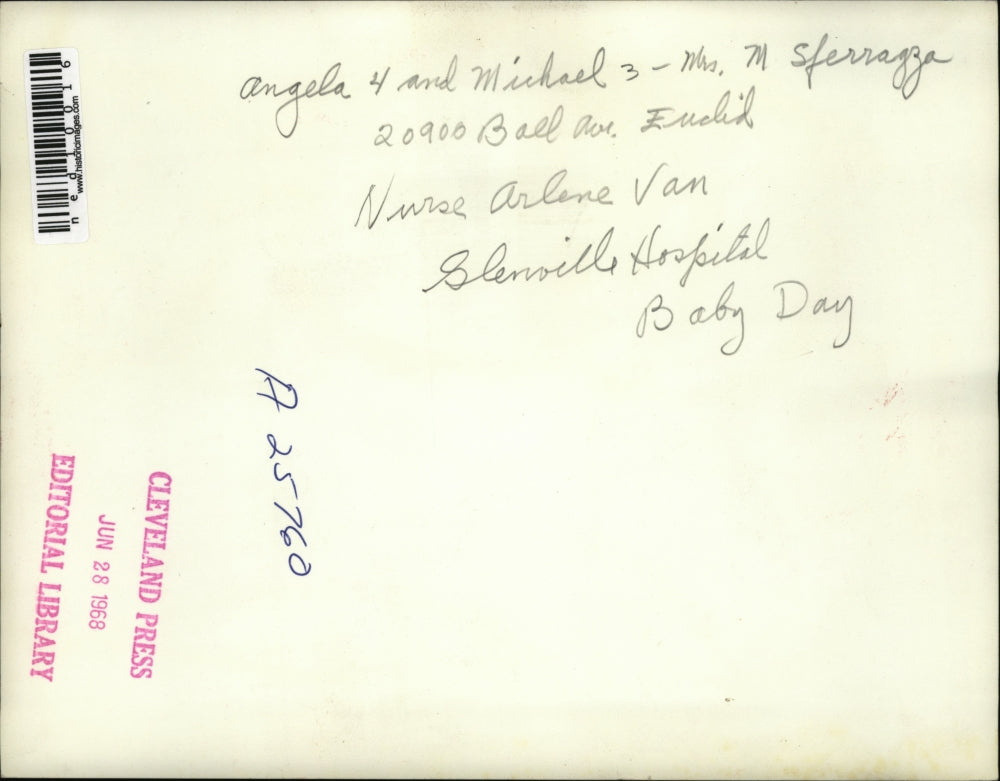 Angela 4 and Michael 3 - Mrs. M Sferragza
20900 Ball Ave. Euclid
Nurse Arlene Van
Glenville Hospital
Baby Day
A 25760
CLEVELAND PRESS
JUN 28 1968
EDITORIAL LIBRARY
www.historicimages.com
ned10016